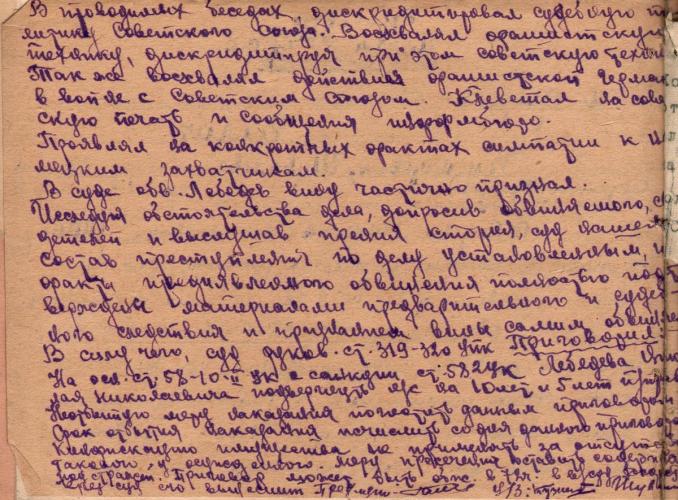 В проводимых беседах, дискредитировал судебную по
литику Советского Союза. Восхвалял фашистскую
технику, дискредитируя при этом советскую техни
Так же восхвалял действия фашистской Герман
в войне с Советским Союзом. Клеветал на сове
скую печать и сообщения информбюро.
Проявлял на конкретных фактах симпатии к
мецким захватчикам.
В суде обв. Лебедев вину частично признал.
Исследуя обстоятельства дела, допросив обвиняемого, с
детелей и выслушав прения сторон, суд нашел
состав преступления по делу установленным, и
факты предъявляемого обвинения полностью подт
верждены материалами предварительного и судеб-
ного следствия и признанием вины самим обвиня
В силу чего, суд руков. ст. 319-320 УПК Приговорил:
На осн. ст. 58-10 ч. II УК с санкции ст. 58-2 УК Лебедева
лая Николаевича подвергнуть л/с на 10 лет и 5 лет
меру наказания поглотить данным приговором
Срок отбытия наказания исчислять со дня данного приговора
Конфискацию имущества не применять за отсутс
такового, и меру пресечения оставить содержан
под стражей. Приговор может быть обж. в